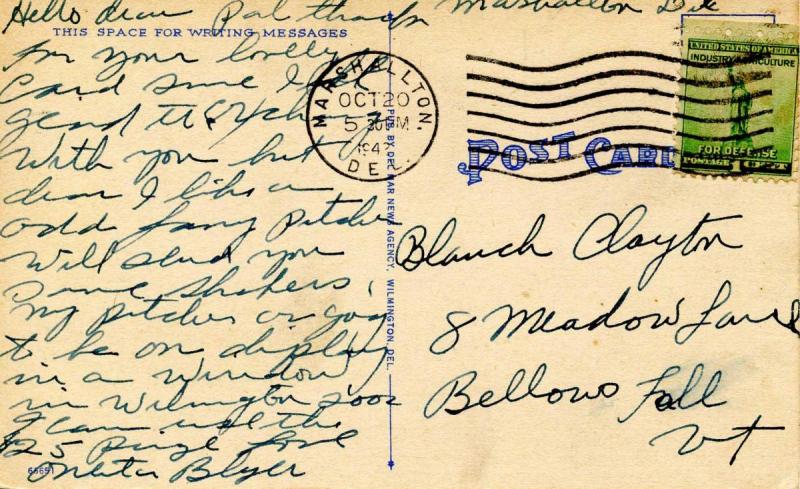 Hello dear Pal thanks Marshallton Del
THIS SPACE FOR WRITING MESSAGES
for your lovely
Card sure I
with you but
dear I like an
odd fancy Pitcher
Will send you
Some Shakers,
My pitcher or going
to be on display
in a Window
in Wilmington soon
I can use the
$25 prize love
Oneita Blyer
65651
PUB. BY DEL MAR NEWS AGENCY, WILMINGTON, DEL.
MARSHALLTON,
OCT 20
5 30 PM
DEL.
UNITED STATES OF AMERICA
INDUSTRY AGRICULTURE
FOR DEFENSE
POSTAGE 1 CENT
POST CARD
Blanch Clayton
8 Meadow Lane
Bellows Fall
Vt